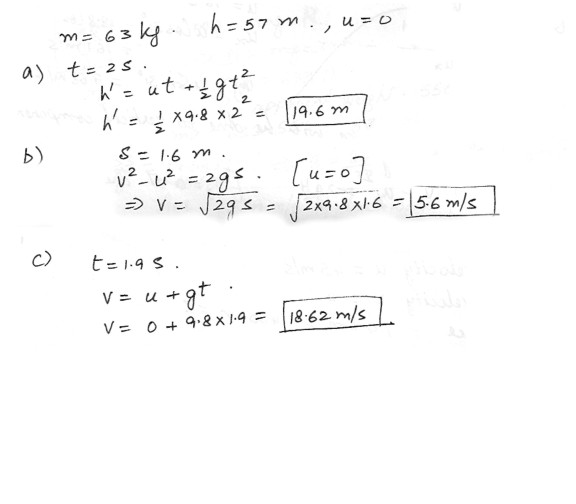 m = 63 kg. h = 57 m., u = 0
a) t = 2 s.
h' = ut + ½gt²
h' = ½ × 9.8 × 2² = 19.6 m
b) S = 1.6 m.
v² - u² = 2gs. [u = 0]
⇒ v = √2gs = √2×9.8×1.6 = 5.6 m/s
c) t = 1.9 s.
v = u + gt.
v = 0 + 9.8 × 1.9 = 18.62 m/s